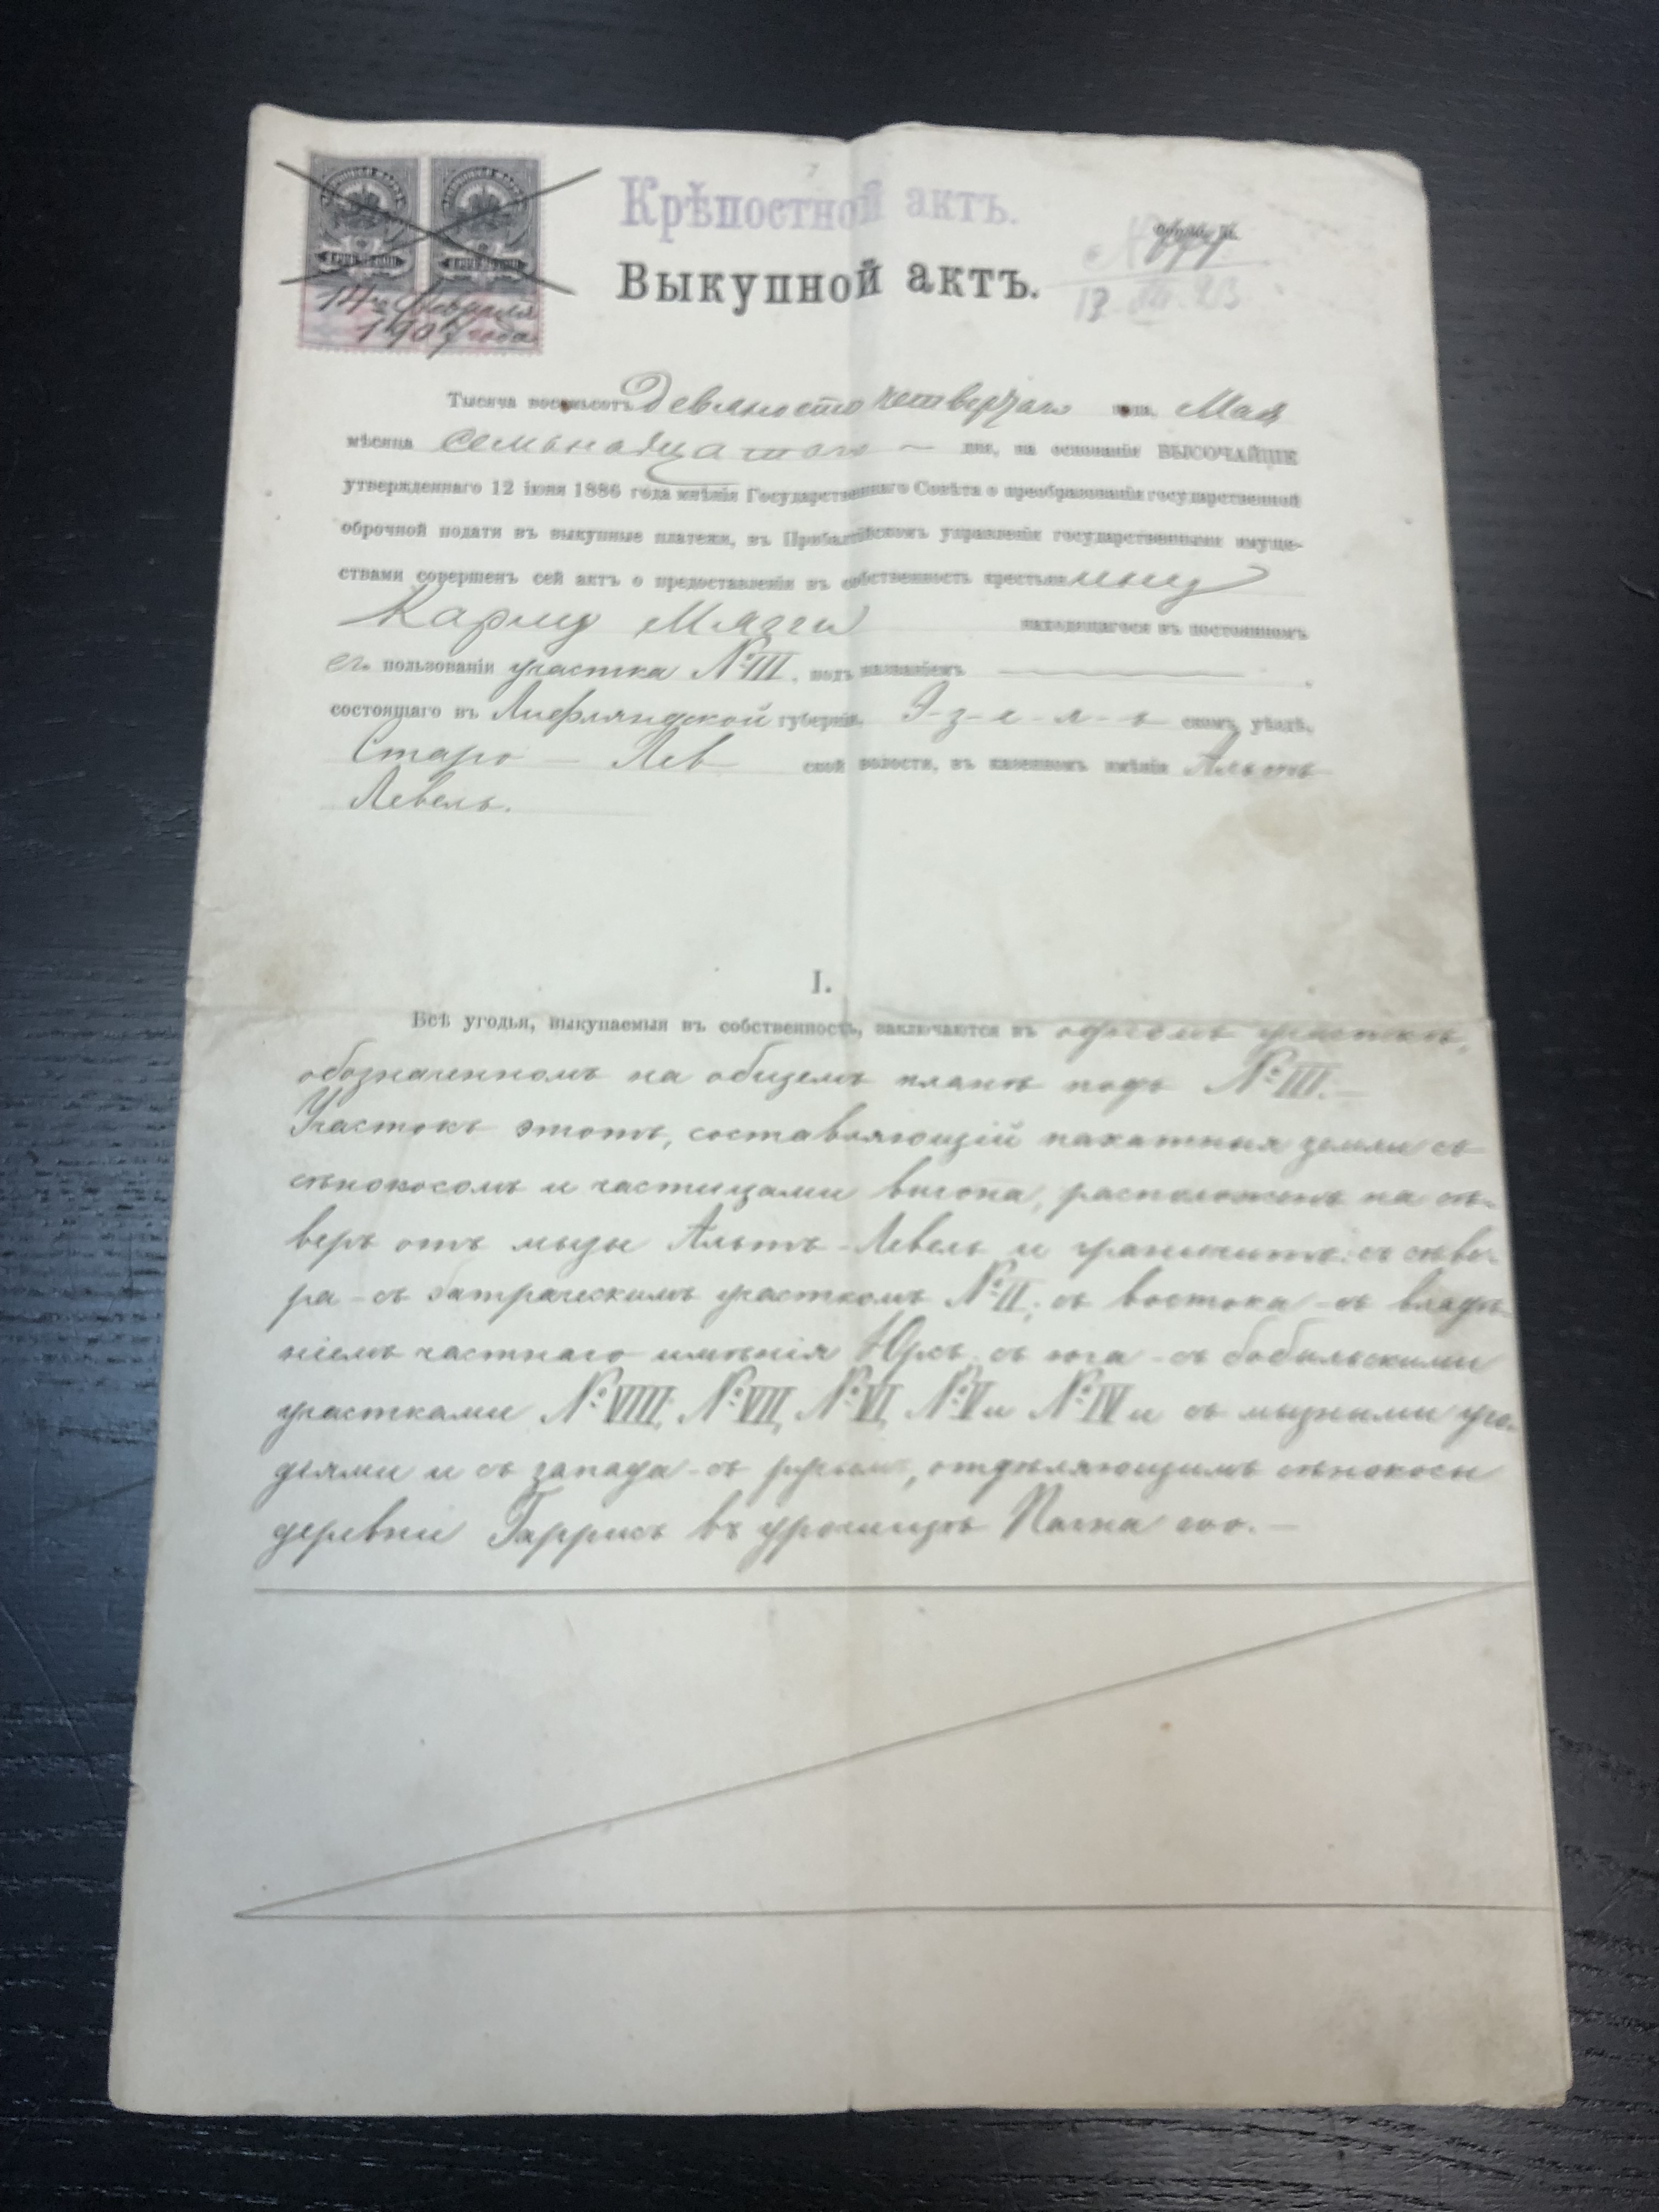 Крѣпостной актъ.
Выкупной актъ.
14го Февраля
1907 года
Тысяча восемьсотъ Девяносто четвертаго года, Мая
мѣсяца семьнадцатаго дня, на основаніи ВЫСОЧАЙШЕ
утвержденнаго 12 іюня 1886 года мнѣнія Государственнаго Совѣта о преобразованіи государственной
оброчной подати въ выкупные платежи, въ Прибалтійскомъ управленіи государственными имуще-
ствами совершенъ сей актъ о предоставленіи въ собственность крестьянину
Карлу Мяги находящагося въ постоянномъ
его пользованіи участка № III, подъ названіемъ
состоящаго въ Лифляндской губерніи, Э-з-е-л-ь скомъ уѣздѣ,
Старо - Лев ской волости, въ казенномъ имѣніи Альтъ-
Левель.
I.
Всѣ угодья, выкупаемыя въ собственность, заключаются въ одномъ участкѣ,
обозначенномъ на общемъ планѣ подъ № III. —
Участокъ этотъ, составляющій пахатныя земли съ
сѣнокосомъ и частицами выгона, расположенъ на сѣ-
веръ отъ мызы Альтъ-Левель и граничитъ: съ сѣве-
ра - съ батрацкимъ участкомъ № II; съ востока - съ владѣ-
ніемъ частнаго имѣнія съ юга - съ бобыльскими
участками № VIII, № VII, № VI, № V и № IV и съ мызными уго-
дьями и съ запада - съ отдѣляющимъ сѣнокосы
деревни Гаррисъ въ урочищѣ